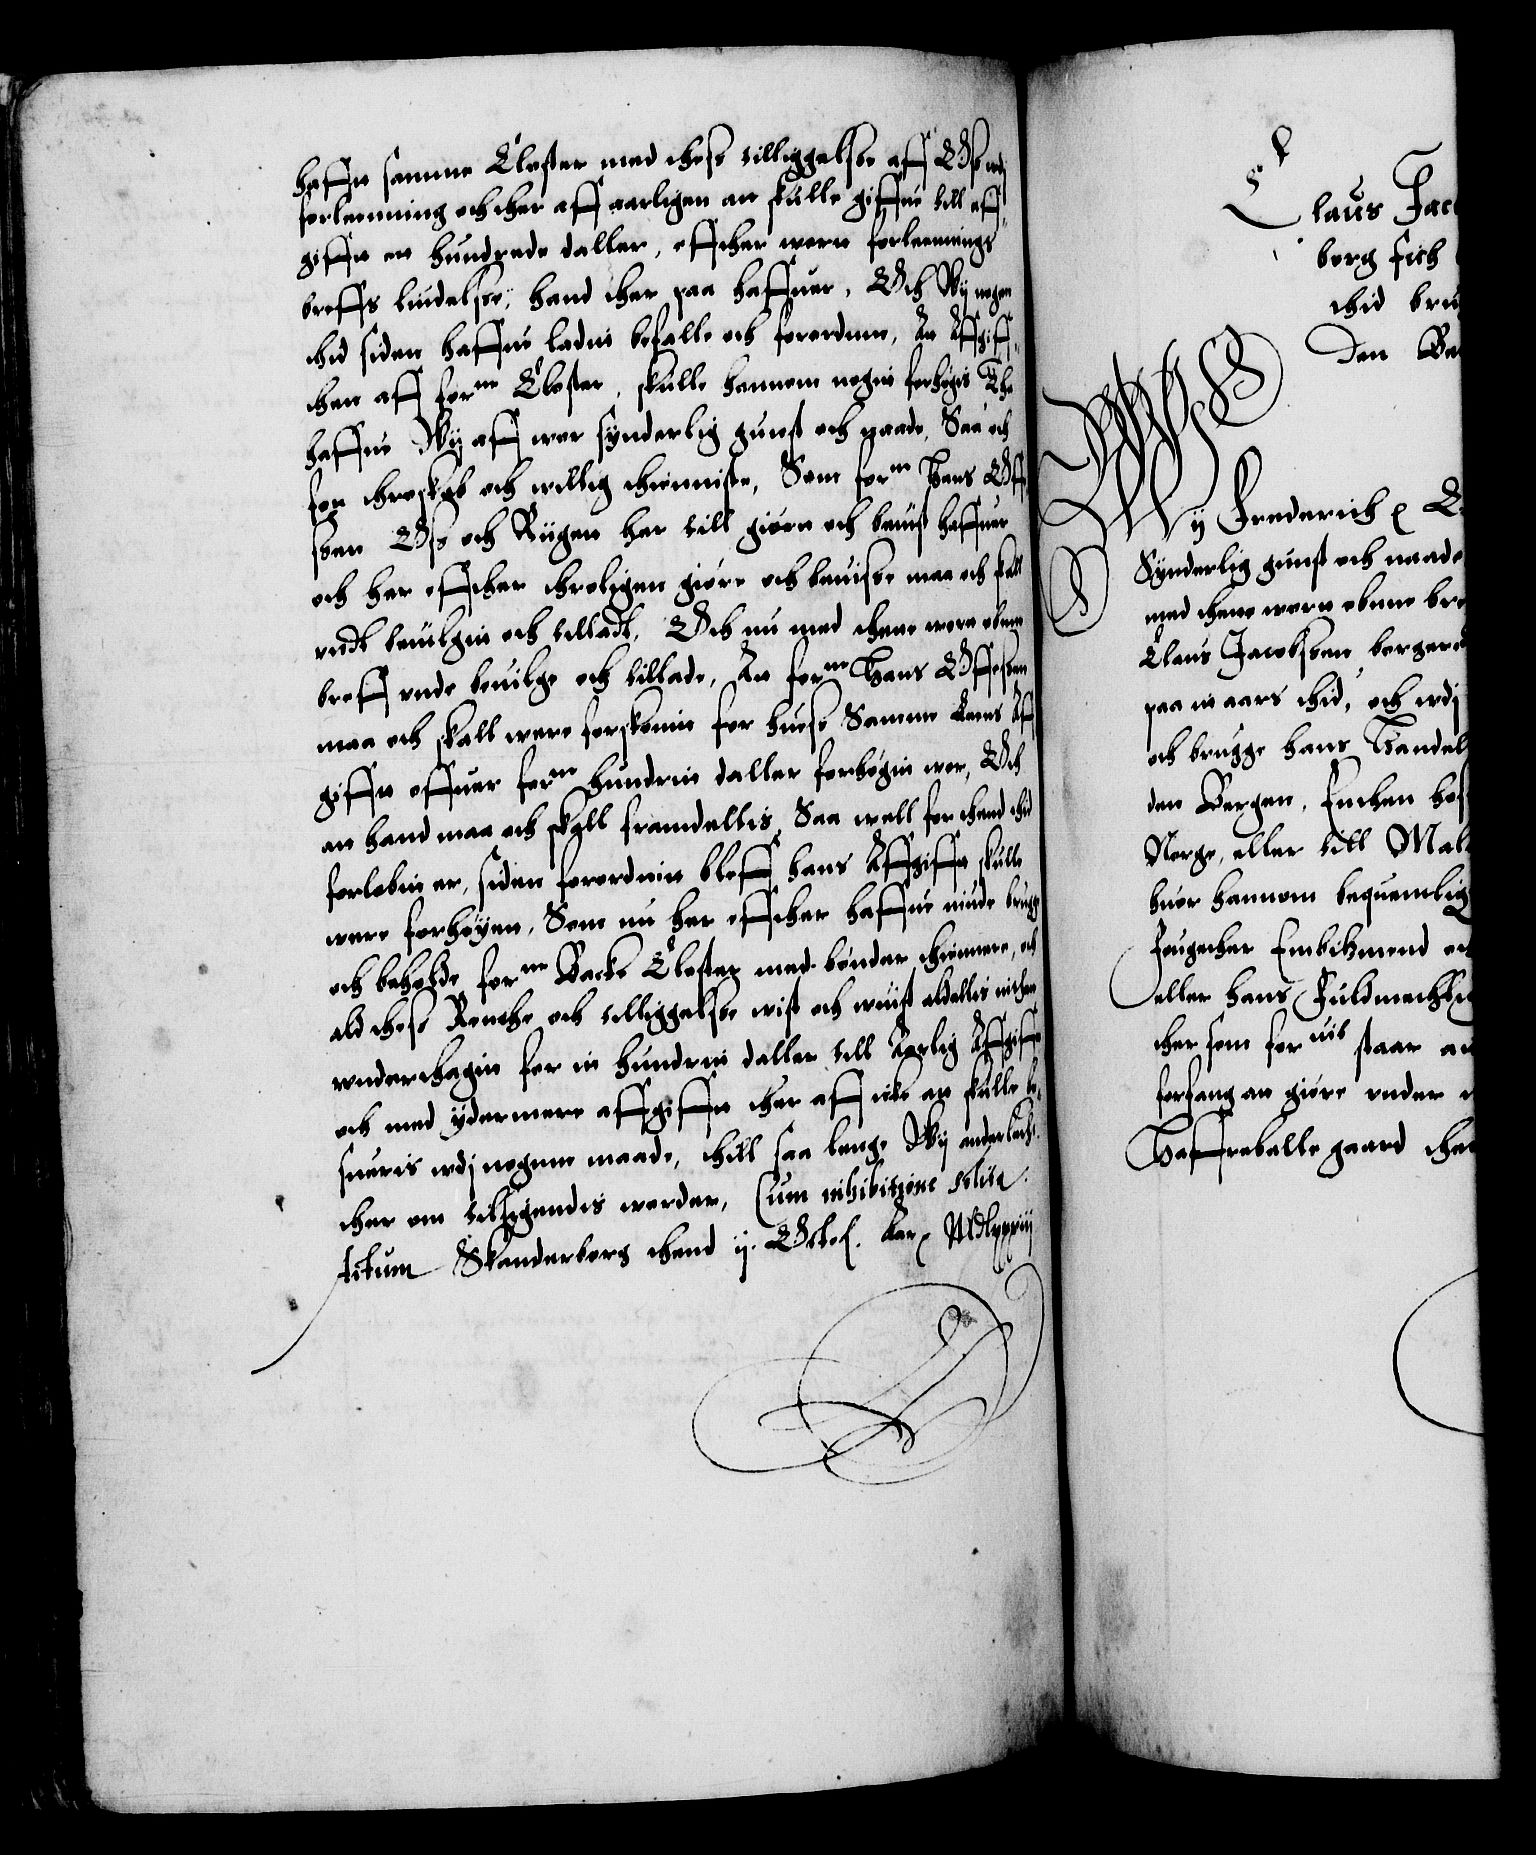 haffue samme Closter med thess tilliggelsse aff Oss udj
forleenning och ther aff aarligen an skulle giffue till aff¬
gifft en hundrede daller, effther worn forleennings
breffs liudelsse, hand ther paa haffuer, Och Wij nogen
thid siden haffue ladit befalle och forordne, An Affgiff¬
then aff forne Closter, skulle hannom noget forhögis Tha
haffue Wij aff wor synderlig gunst och naade, Saa och
for throskab och willig thienniste, Som forne Hans Off
sen Oss och Riigen her till giort och beuist haffuer
och her effther throligen giøre och beuisse maa och skall
undt beuilget och tilladt, Och nu med thette wort obne
breff unde beuilge och tillade, An forne Hans Offesen
maa och skall were forskonit for huess Samme Aars Aff
gifft offuer forne hundrit daller forhögit wor, Och
an hand maa och skall framdellis, Saa well for thend thid
forløbin er, siden forordnit bleff hans Affgifft skulle
were forhøyet, Som nu her effther haffue niude brugge
och beholde forne Backe Closter med bönder thiennere, och
ald thess Rennthe och tilliggelsse wist och wuist aldellis inthet
wnderthagit for it hundrit daller till Aarlig Affgifft
och med ydermere affgifft ther aff icke an skulle be¬
suæris udj nogen maade, thill saa lenge Wij anderledis
ther om tilsigendis worder, Cum inhibitione solita.
Actum Skanderborg thend ij. Octob. Aar MDlxxxiij

Claus Jac
berg fich
thid bru
den Be
Wij Frederich
Synderlig gunst och naade
med thette wort obne bre
Claus Jacobssen borgere
paa iij aars thid, och udj
och brugge hans Handel
den Bergen, Inthen hoss
Norge, eller till Mal
huor hannom bequemlig
Fougether Embitzmend
eller hans Fuldmechtig
ther som foruit staar
forfang an giøre under
Haffreballegaard then